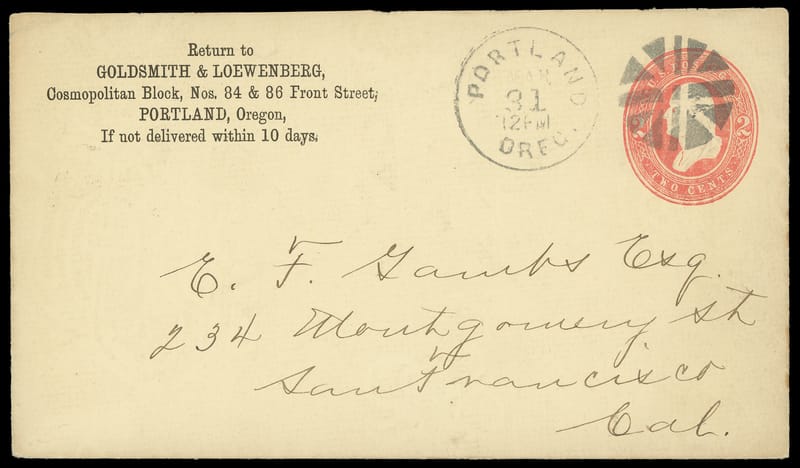 Return to
GOLDSMITH & LOEWENBERG,
Cosmopolitan Block, Nos. 84 & 86 Front Street,
PORTLAND, Oregon,
If not delivered within 10 days.
PORTLAND
MAR
31
12PM
OREG.
U.S. POSTAGE
2 2
TWO CENTS
E. F. Gambs Esq.
234 Montgomery St
San Francisco
Cal.